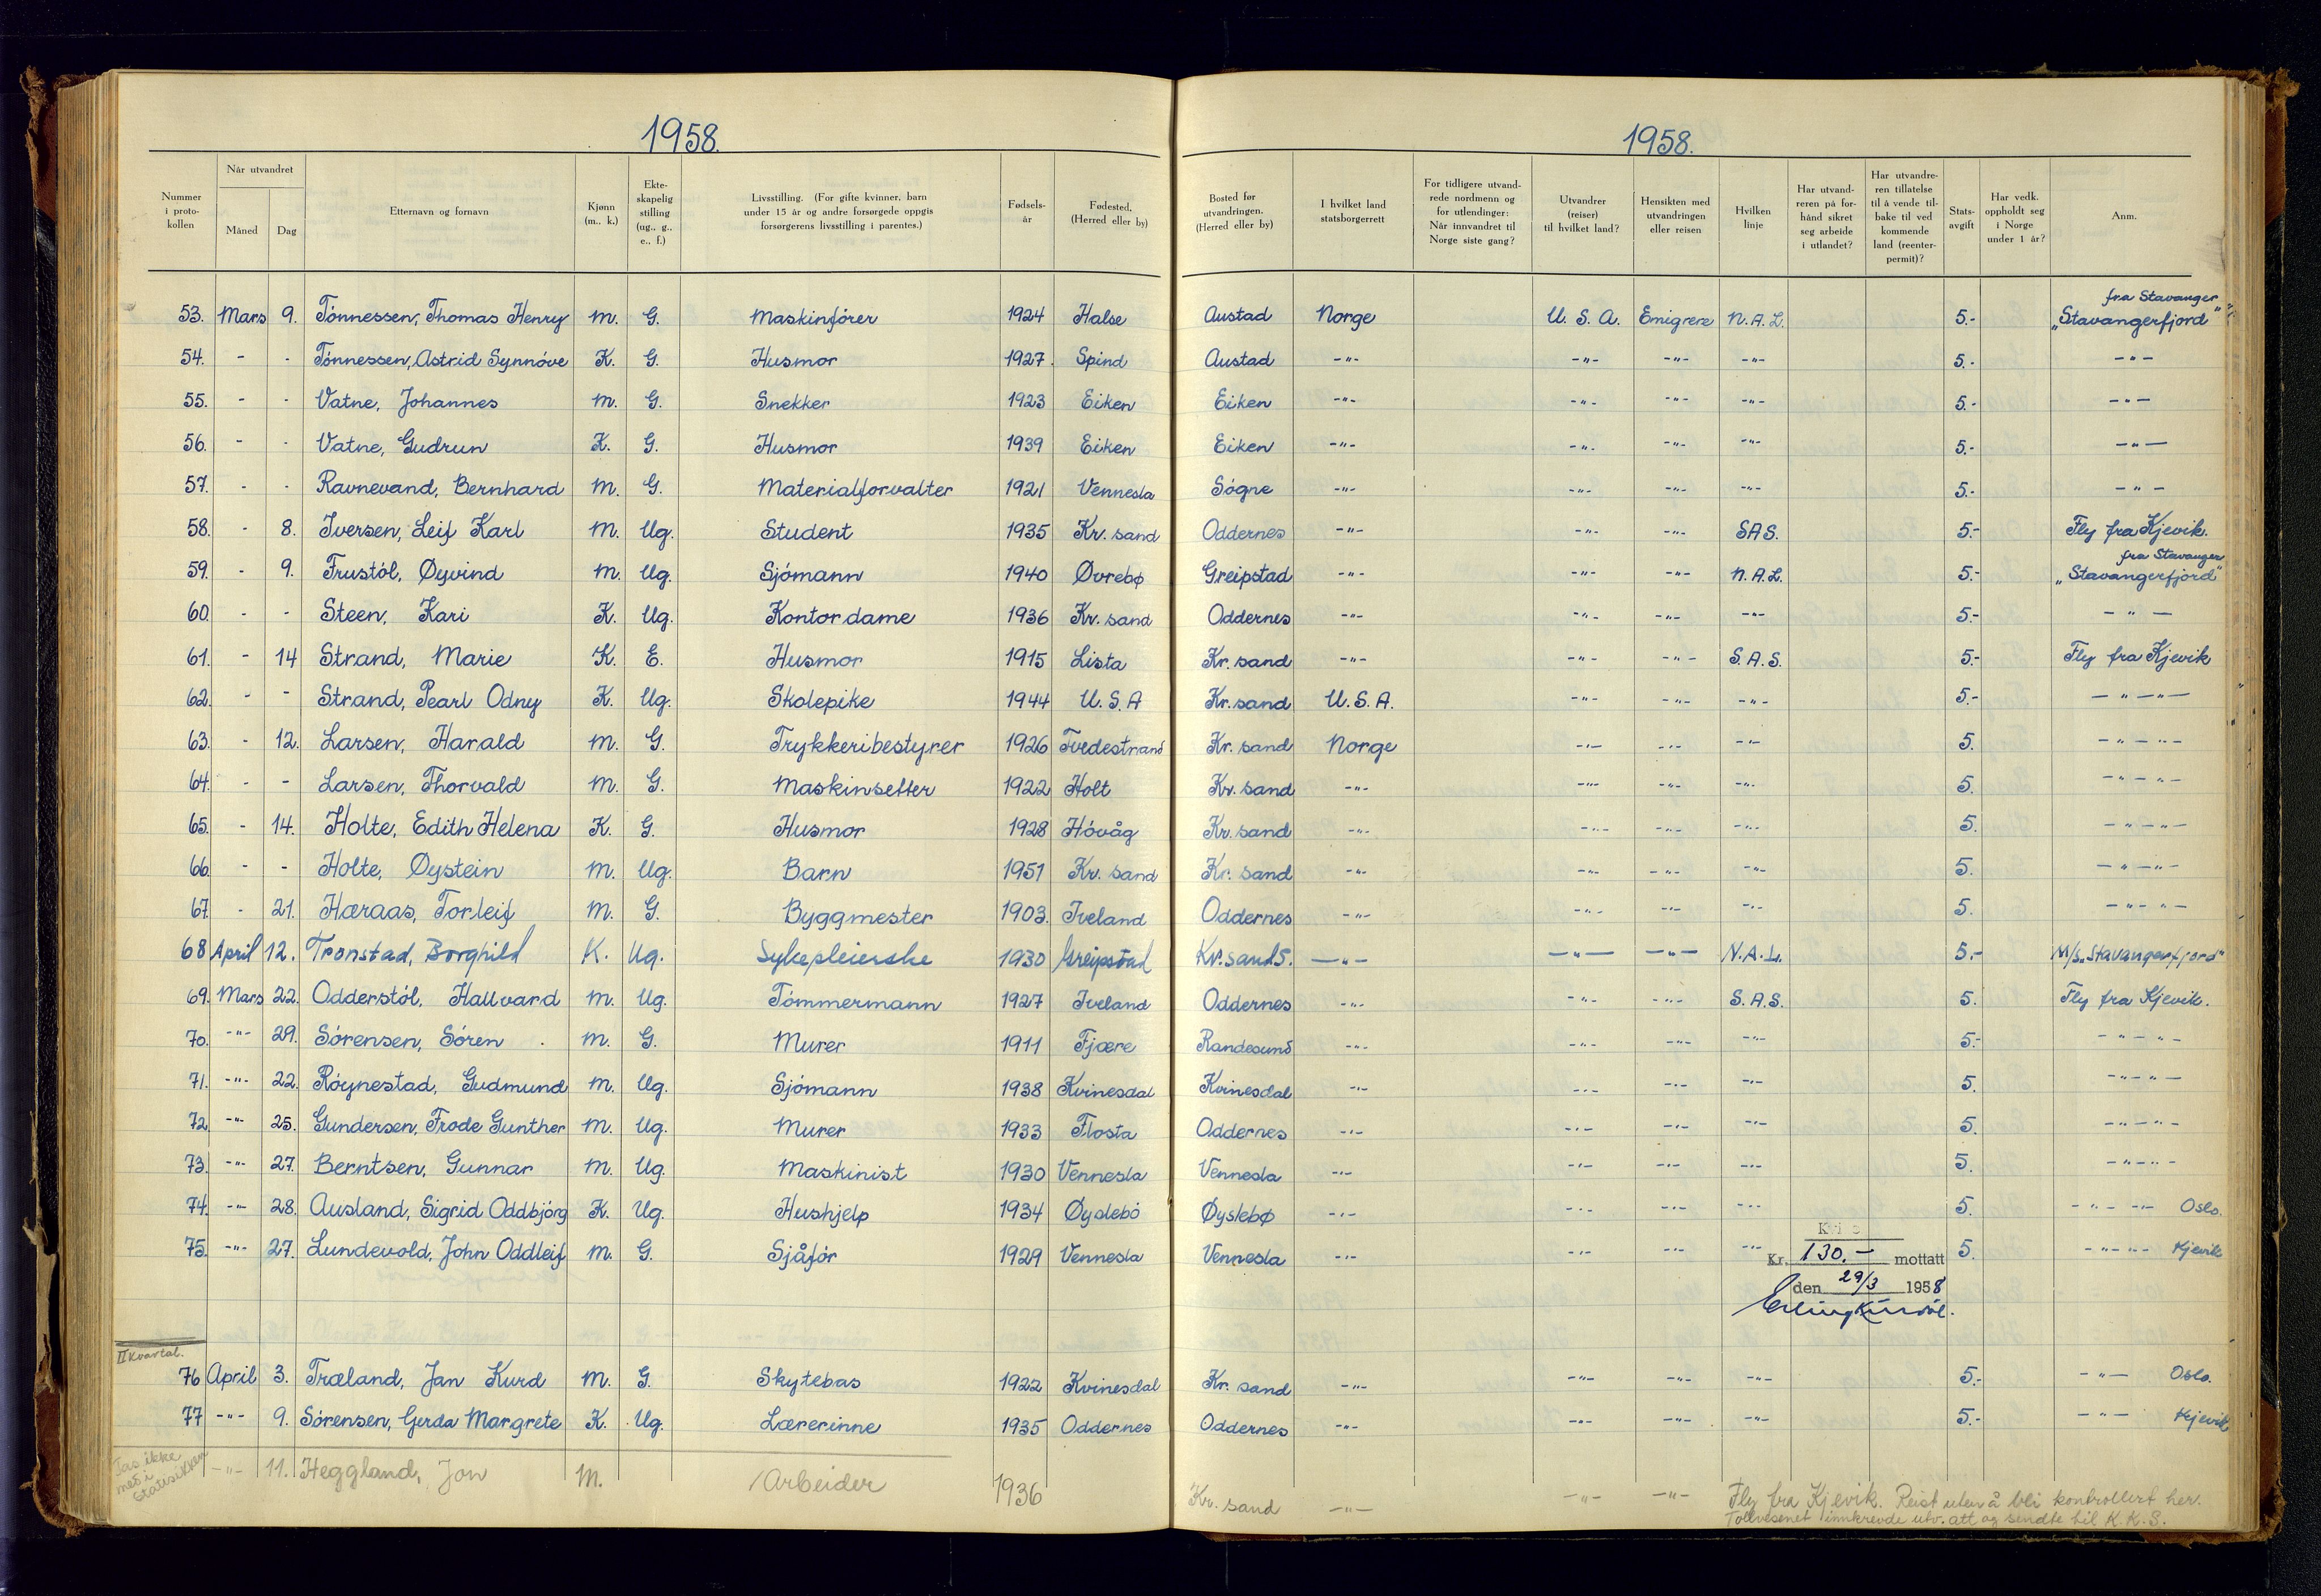 1958.
1958.
Nummer i protokollen | Når utvandret Måned | Dag | Etternavn og fornavn | Kjønn (m., k.) | Ekteskapelig stilling (ug., g., e., f.) | Livsstilling. (For gifte kvinner, barn under 15 år og andre forsørgede oppgis forsørgerens livsstilling i parentes.) | Fødselsår | Fødested. (Herred eller by) | Bosted før utvandringen. (Herred eller by) | I hvilket land statsborgerrett | For tidligere utvandrede nordmenn og for utlendinger: Når innvandret til Norge siste gang? | Utvandrer (reiser) til hvilket land? | Hensikten med utvandringen eller reisen | Hvilken linje | Har utvandreren på forhånd sikret seg arbeide i utlandet? | Har utvandreren tillatelse til å vende tilbake til ved kommende land (reenterpermit)? | Statsavgift | Har vedk. oppholdt seg i Norge under 1 år? | Anm.
53. Mars 9. Tónnessen, Thomas Henry M. G. Maskinfórer 1924 Halse Austad Norge U. S. A. Emigrere N. A. L. 5.- fra Stavanger „Stavangerfjord"
54. - - Tónnessen, Astrid Synnóve K. G. Husmor 1927. Spind Austad -"- -"- -"- -"- 5.- -"-
55. - - Vatne, Johannes M. G. Snekker 1923 Eiken Eiken -"- -"- -"- -"- 5.- -"-
56. - - Vatne, Gudrun K. G. Husmor 1939 Eiken Eiken -"- -"- -"- -"- 5.- -"-
57. - - Ravnevand, Bernhard M. G. Materialforvalter 1921 Vennesla Sógne -"- -"- -"- -"- 5.- -"-
58. - 8. Iversen, Leif Karl M. Ug. Student 1935 Kr. sand Oddernes -"- -"- -"- SAS. 5.- Fly fra Kjevik.
59. - 9. Frustól, Øyvind M. Ug. Sjómann 1940 Øvrebø Greipstad -"- -"- -"- N.A.L. 5.- fra Stavanger „Stavangerfjord"
60. - - Steen, Kari K. Ug. Kontordame 1936 Kr. sand Oddernes -"- -"- -"- -"- 5.- -"-
61. - 14 Strand, Marie K. E. Husmor 1915 Lista Kr. sand -"- -"- -"- S.A.S. 5.- Fly fra Kjevik
62. - - Strand, Pearl Odny K. Ug. Skolepike 1944 U.S.A Kr. sand U.S.A. -"- -"- -"- 5.- -"-"-
63. - 12. Larsen, Harald M. G. Trykkeribestyrer 1926 Tvedestrand Kr. sand Norge -"- -"- -"- 5. -"-"-
64. - - Larsen, Thorvald M. G. Maskinsetter 1922 Holt Kr. sand -"- -"- -"- -"- 5. -"-"-
65. - 14. Holte, Edith Helena K. G. Husmor 1928 Hóvåg Kr. sand -"- -"- -"- -"- 5. -"-"-
66. - - Holte, Øystein M. Ug. Barn 1951 Kr. sand Kr. sand -"- -"- -"- -"- 5. -"-"-
67. - 21. Hæraas, Torleif M. G. Byggmester 1903. Iveland Oddernes -"- -"- -"- -"- 5. -"-"-
68 April 12. Tronstad, Borghild K. Ug. Sykepleierske 1930 Greipstad Kr.sand S. -"- -"- -"- N.A.L. 5.- M/S „Stavangerfjord"
69. Mars 22. Odderstól, Hallvard M. Ug. Tómmermann 1927 Iveland Oddernes -"- -"- -"- S.A.S. 5. Fly fra Kjevik.
70. -"- 29. Sórensen, Sóren M. G. Murer 1911 Fjære Randesund -"- -"- -"- -"- 5.- -"-"-
71. -"- 22. Róynestad, Gudmund M. Ug. Sjómann 1938 Kvinesdal Kvinesdal -"- -"- -"- -"- 5. -"-"-
72. -"- 25. Gundersen, Frode Gunther M. Ug. Murer 1933 Flosta Oddernes -"- -"- -"- -"- 5. -"-"-
73. -"- 27. Berntsen, Gunnar M. Ug. Maskinist 1930 Vennesla Vennesla -"- -"- -"- -"- 5. -"-"-
74. -"- 28. Ausland, Sigrid Oddbjórg K. Ug. Hushjelp 1934 Øyslebó Øyslebø -"- -"- -"- -"- 5. -"-"- Oslo.
75. -"- 27. Lundevold, John Oddleif M. G. Sjåfór 1929 Vennesla Vennesla -"- -"- -"- -"- 5. -"-"- Kjevik
Kr. 130.- mottatt
den 29/3 1958
II Kvartal.
76 April 3. Træland, Jan Kurd M. G. Skytebas 1922 Kvinesdal Kr. sand -"- -"- -"- -"- 5.- -"- Oslo.
77 -"- 9. Sórensen, Gerda Margrete K. Ug. Lærerinne 1935 Oddernes Oddernes -"- -"- -"- -"- 5.- -"- Kjevik
Tas ikke med i statisikken -"- 11. Heggland, Jon M. Arbeider 1936 Kr. sand -"- -"- -"- Fly fra Kjevik. Reist uten å bli kontrollert her.
Tollvesenet innkrevde utv. att og sendte til K.K.S.